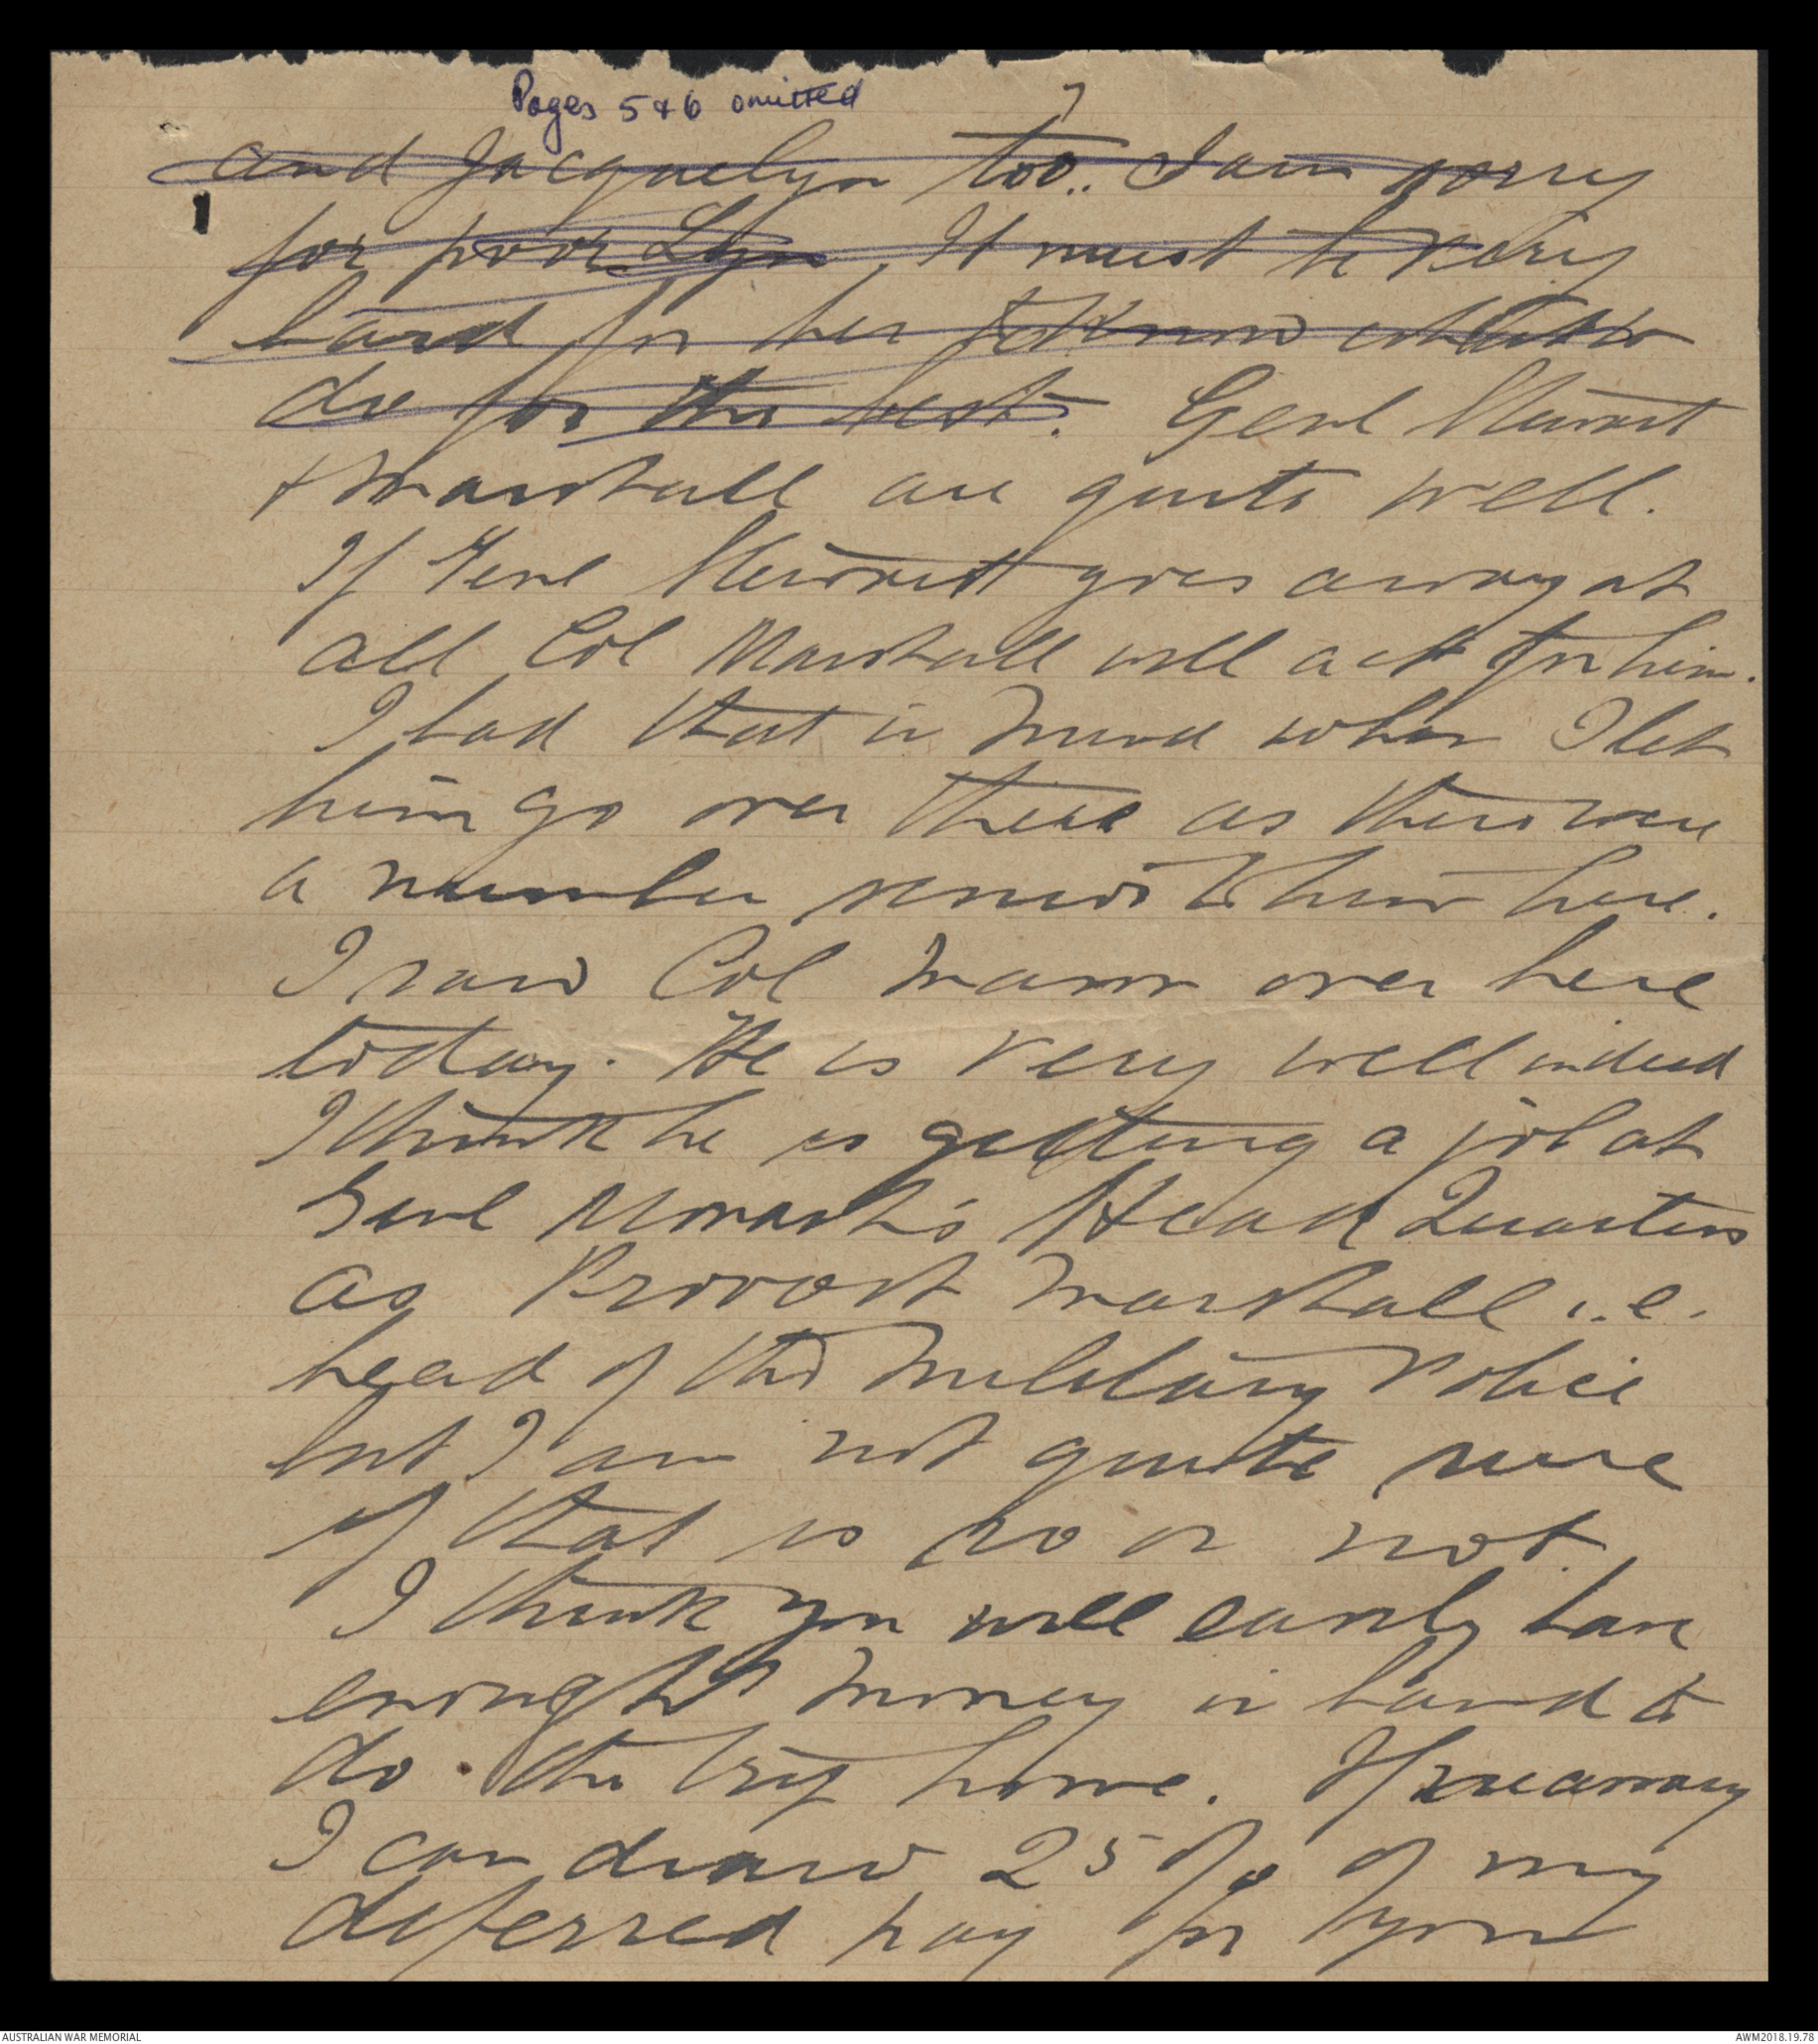 Pages 5 & 6 omitted
7
and Jacquelyn too.. I am sorry
for poor Lyn. It must be very
hard for her to know what to
do for the best. Genl Stewart
& Marshall are quite well.
If Genl Stewart goes away at
all Col Marshall will act for him.
I had that in mind when I let
him go over there as there were
a number senior to him here.
I saw Col Mann over here
today. He is very well indeed
I think he is getting a job at
Genl Monash's Head Quarters
as Provost Marshall i.e.
head of the Military Police
but I am not quite sure
if that is so or not.
I think you will easily have
enough money in hand to
do the trip home. If necessary
I can draw 25% of my
deferred pay for you
AUSTRALIAN WAR MEMORIAL
AWM2018.19.78